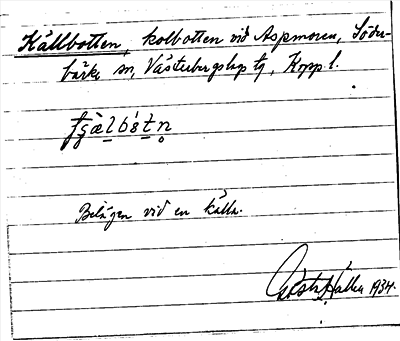 Källbotten, kolbotten vid Aspmoren, Söder-
bärke sn, Västerbergslags tg, Kopp l.
Belägen vid en källa.
Gösta Hallen 1934.